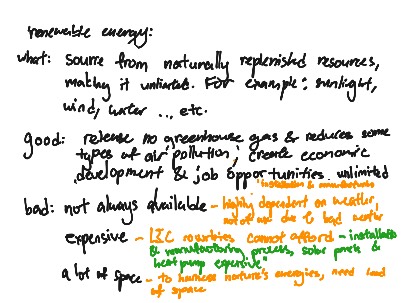 renewable energy:
what: source from naturally replenished resources,
making it unlimited. For example: sunlight,
wind, water ..., etc.
good: release no greenhouse gas & reduces some
types of air pollution; create economic
development & job opportunities. unlimited
"installation & manufacturing
bad: not always available - highly dependent on weather,
not of use due to bad weather
expensive - LIC countries cannot afford - installation
& manufacturing process, solar panels &
heat pump expensive"
a lot of space - to harness nature's energies, need load
of space